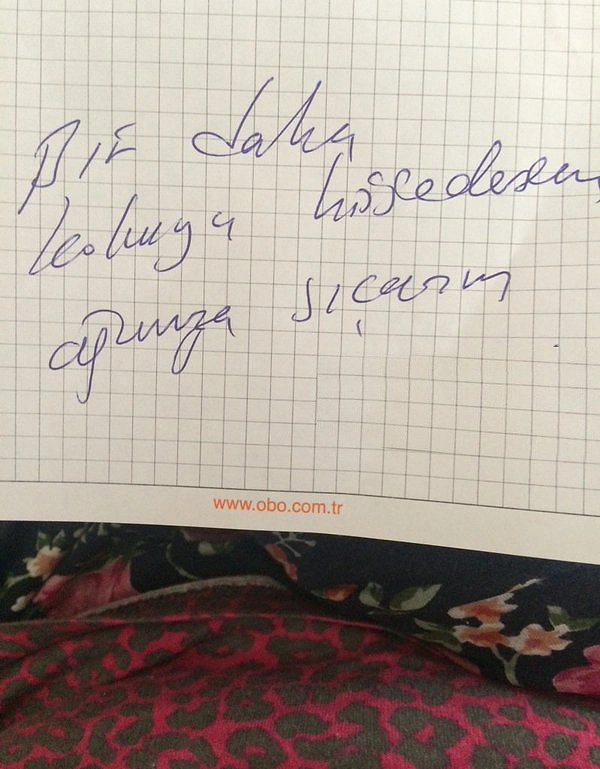 Bir daha
kokuyu hissedersem
ağzınıza sıçarım
www.obo.com.tr